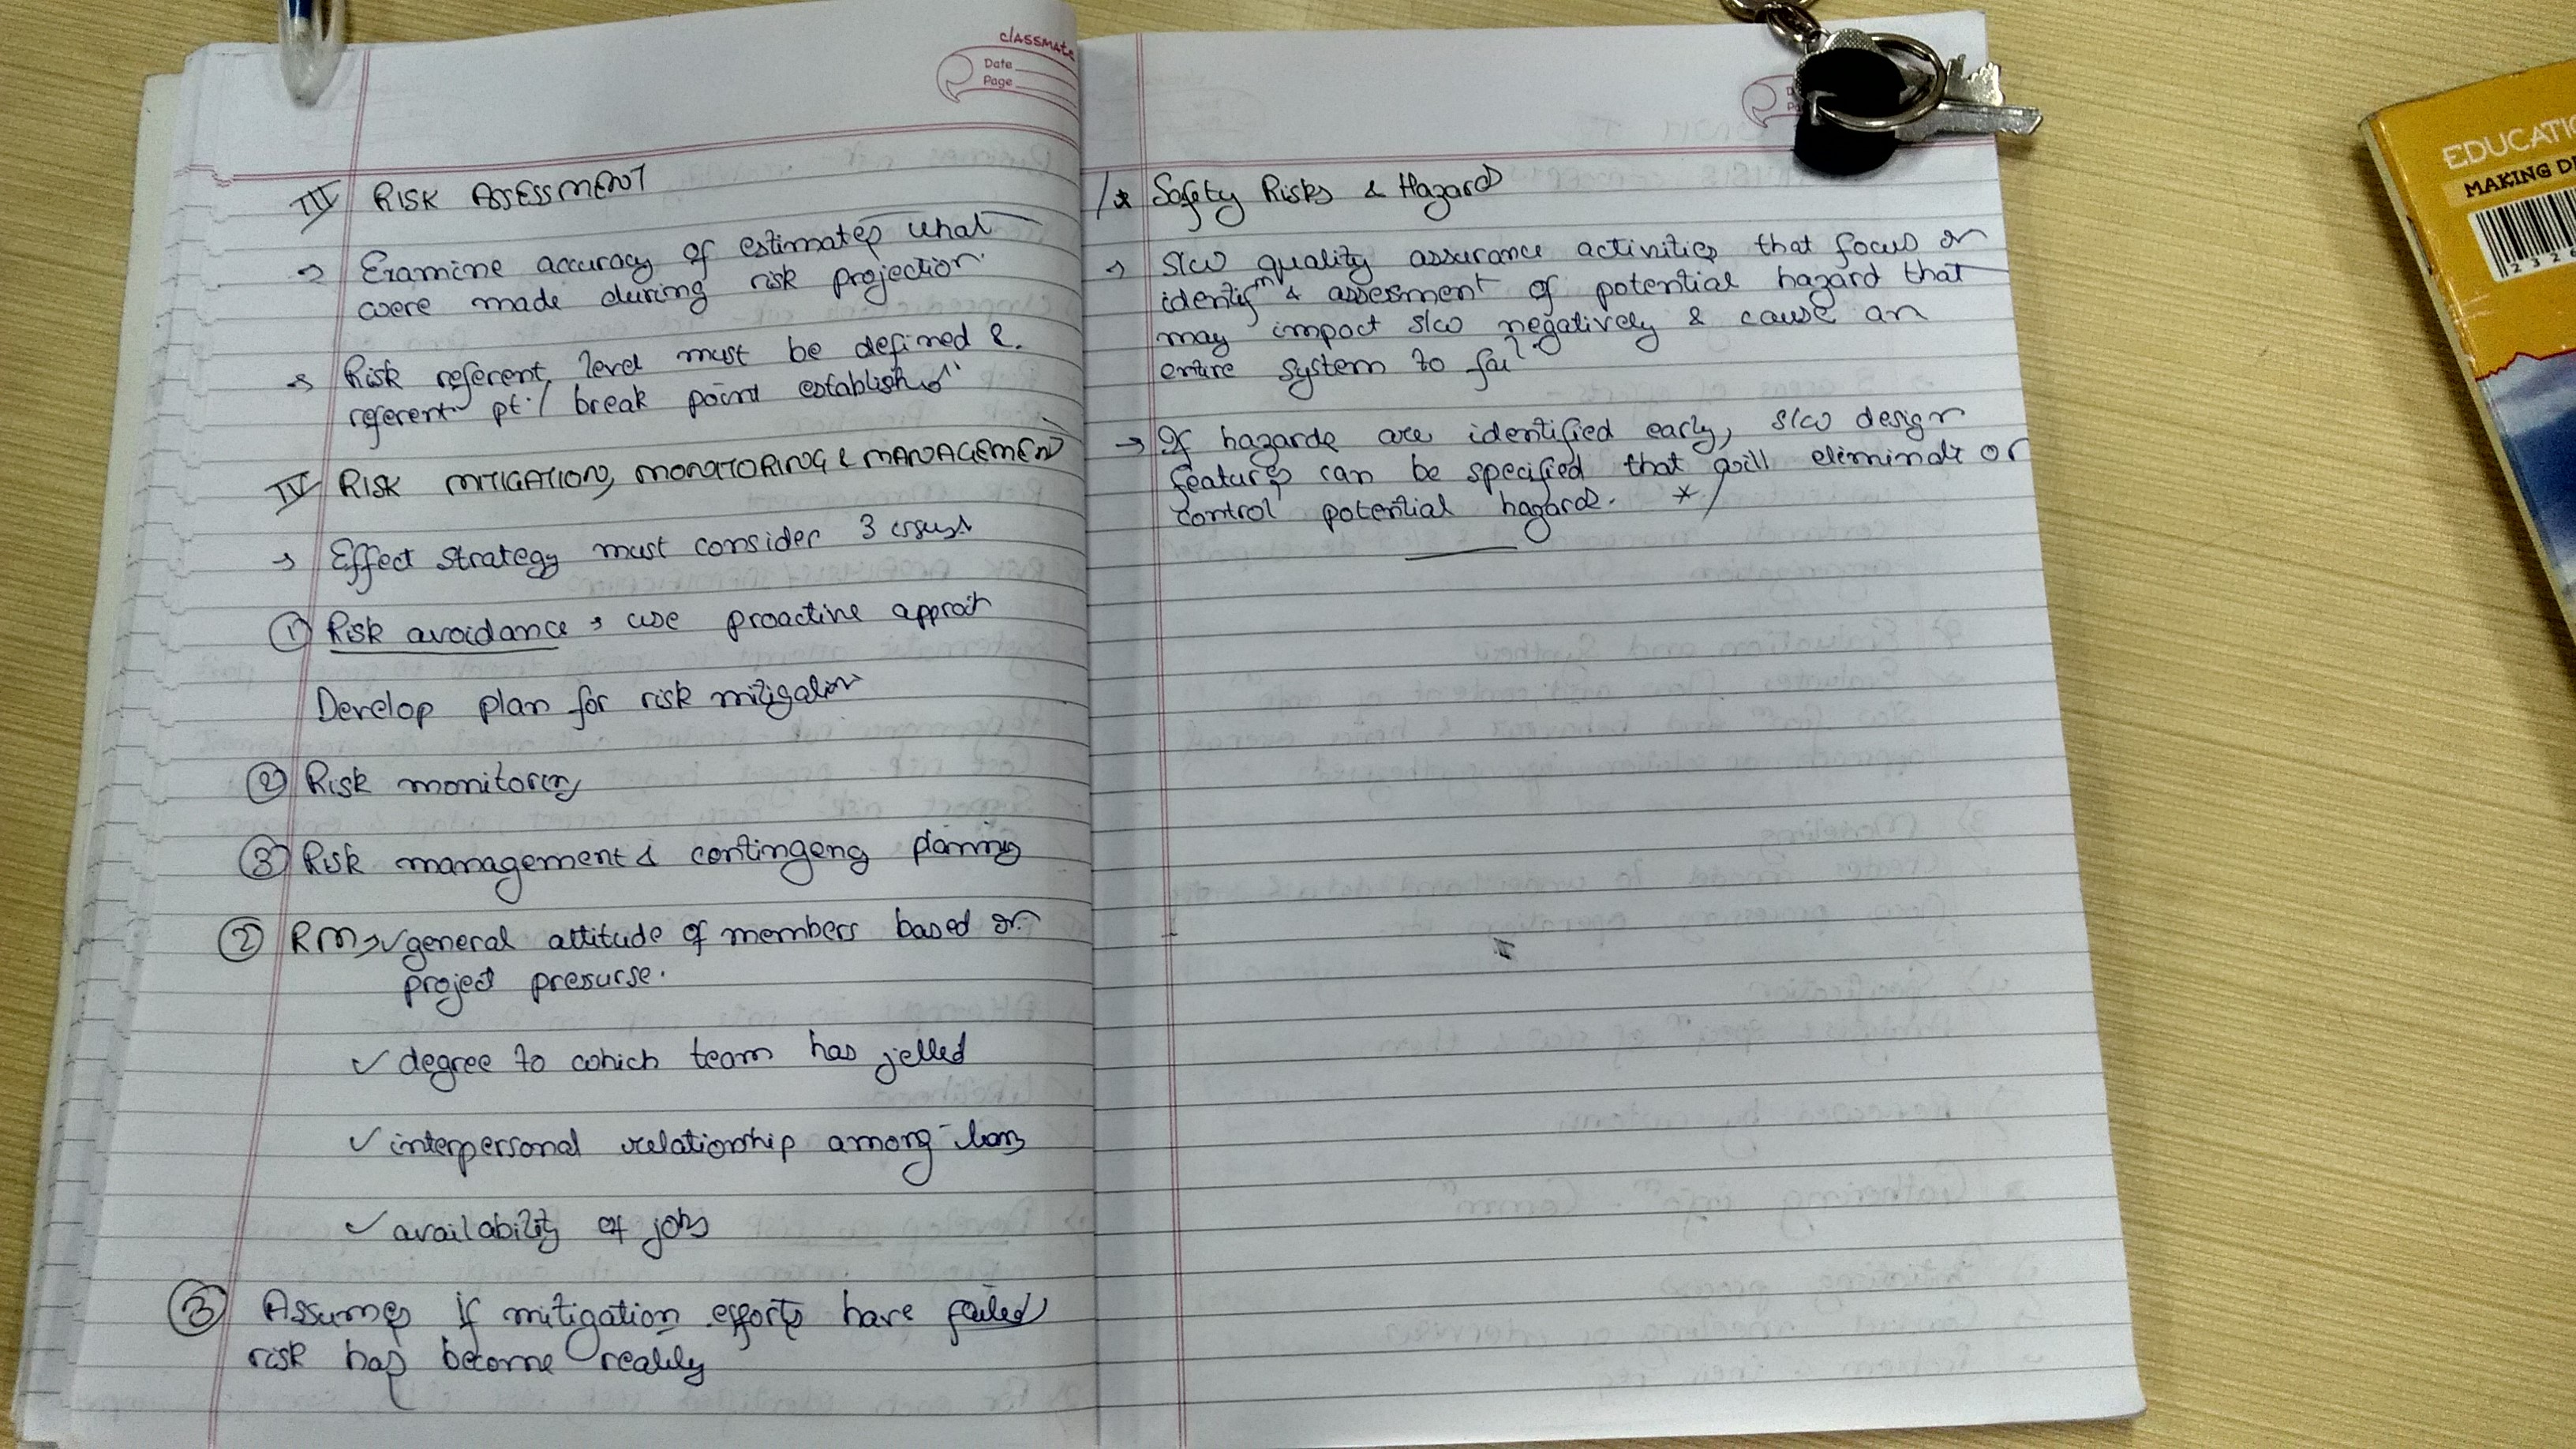 classmate
Date
Page
III RISK ASSESSMENT
→ Examine accuracy of estimates what
were made during risk projection.
→ Risk referent level must be defined &
referent pt. / break point established
IV RISK MITIGATION, MONITORING & MANAGEMENT
→ Effect strategy must consider 3 issues
① Risk avoidance → use proactive approch
Develop plan for risk mitigation
② Risk monitoring
③ Risk management & contingeng planning
② RM → ✓ general attitude of members based on
project presurse.
✓ degree to which team has jelled
✓ interpersonal relationship among
✓ availability of jobs
③ Assumes if mitigation efforts have failed
risk has become reality
/* Safety Risks & Hazard
→ S/w quality assurance activities that focus on
identifⁿ & assesment of potential hazard that
may impact s/w negatively & cause an
entire system to fail
→ If hazards are identified early, s/w design
features can be specified that will eliminate or
control potential hazards. */
EDUCATIO
MAKING D
2 3 2 6